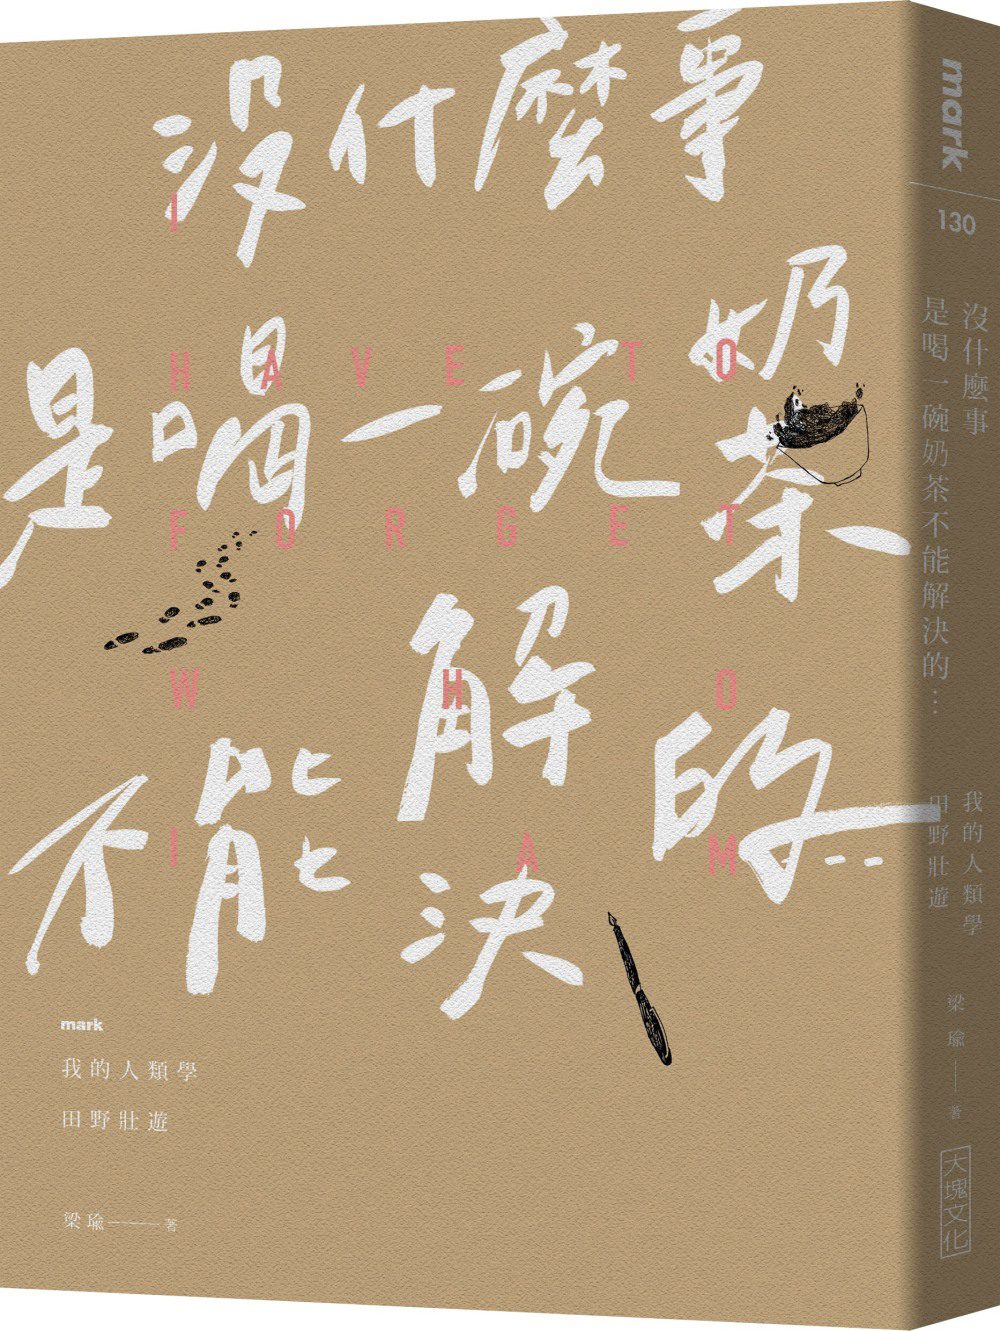 沒什麼事
是喝一碗奶茶
不能解決的...
I
HAVE TO
FORGET
WHO
I AM
mark
我的人類學
田野壯遊
梁瑜──著
mark
130
沒什麼事
是喝一碗奶茶不能解決的…
我的人類學
田野壯遊
梁瑜──著
大塊文化